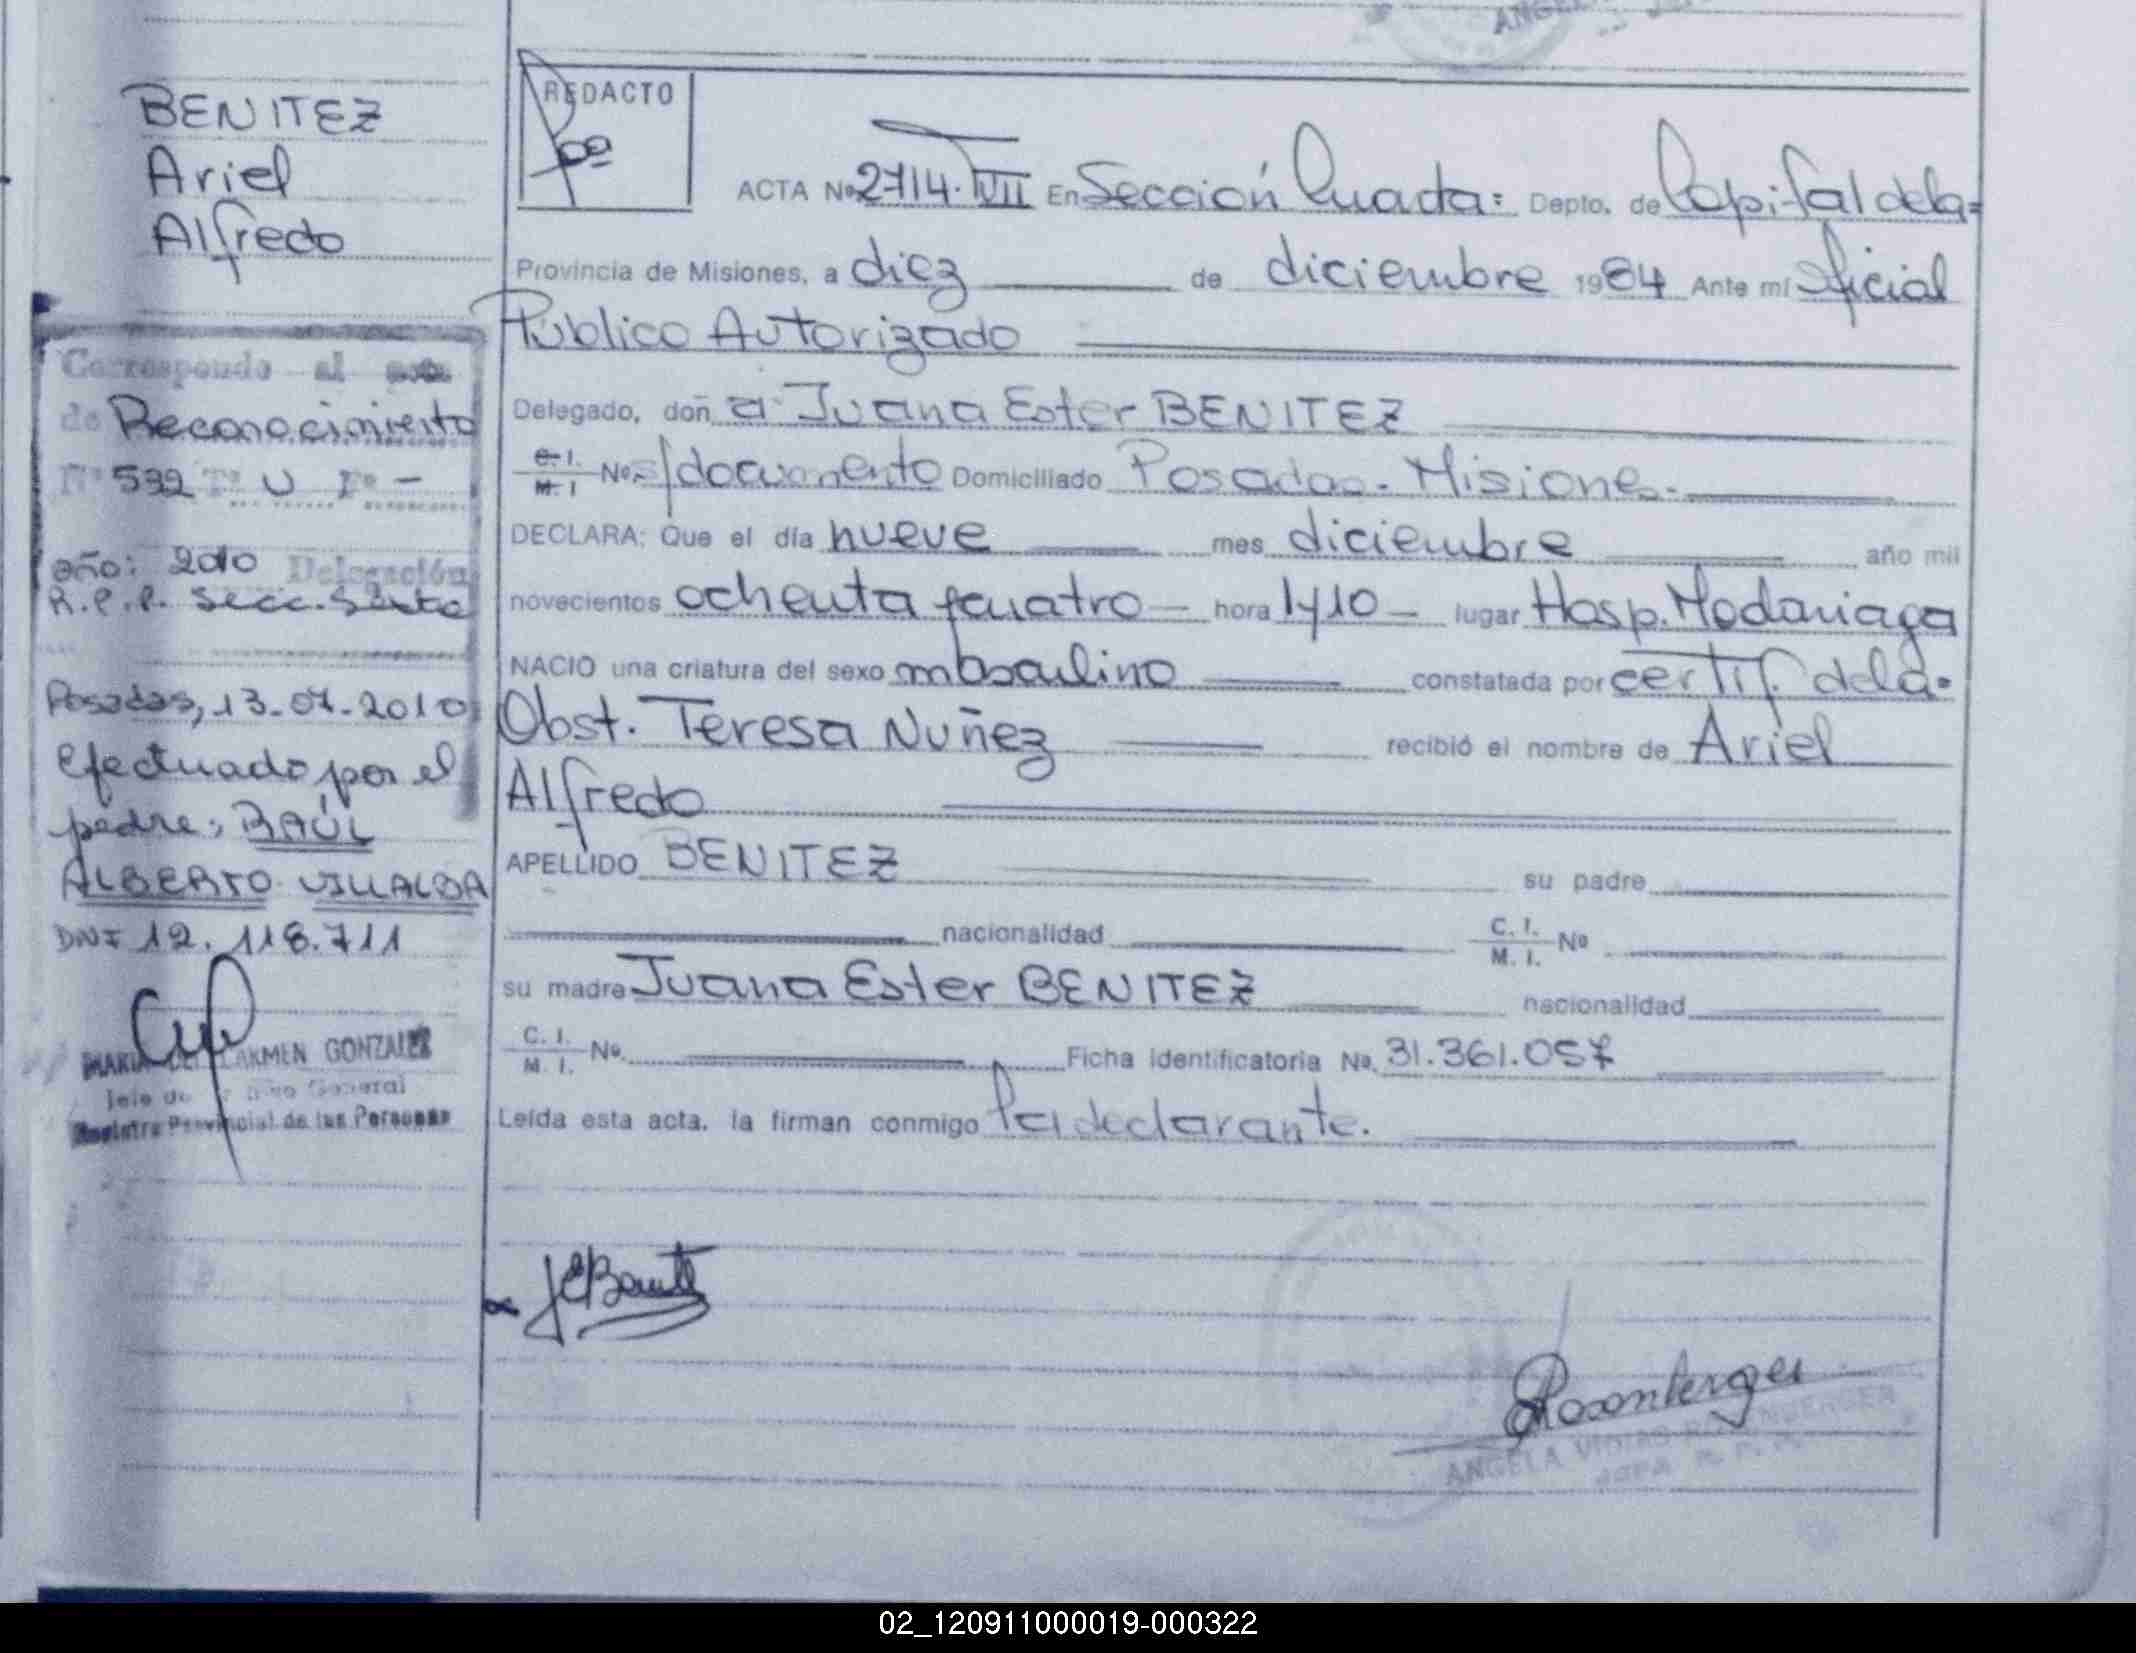 BENITEZ
Ariel
Alfredo
Corresponde al acta
de Reconocimiento
Nº 532 Tº U Fº -
año: 2010 Delegación
R.P.P. Secc. Sexta
Posadas, 13.07.2010
Efectuado por el
padre: RAÚL
ALBERTO VILLALBA
DNI 12.118.711
MARIA DEL CARMEN GONZALEZ
General
Registro Provincial de las Personas
REDACTO
ACTA Nº 2714. T VII En Sección Cuarta: Depto. de Capital de la=
Provincia de Misiones, a diez de diciembre 1984 Ante mí Oficial
Público Autorizado
Delegado, doña Juana Ester BENITEZ
C. I. M. I Nº. s/documento Domiciliado Posadas. Misiones.
DECLARA: Que el día nueve mes diciembre año mil
novecientos ochenta y cuatro hora 1y10 lugar Hosp. Madariaga
NACIO una criatura del sexo masculino constatada por certif. de la
Obst. Teresa Nuñez recibió el nombre de Ariel
Alfredo
APELLIDO BENITEZ su padre
nacionalidad C. I. M. I. Nº
su madre Juana Ester BENITEZ nacionalidad
C. I. M. I. Nº. Ficha identificatoria No. 31.361.057
Leída esta acta, la firman conmigo la declarante.
JEBenitz
Rosenberger
ANGELA ROSENBERGER
JEFA R. P. P.
02_120911000019-000322